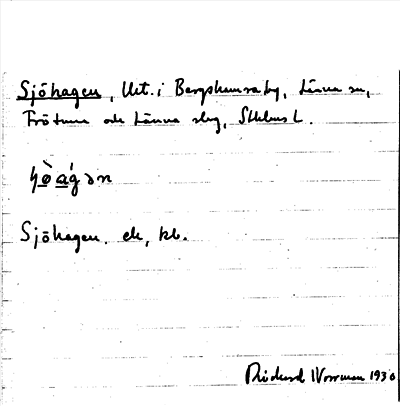 Sjöhagen, Ut. i Bergshamra by, Länna sn,
Frötuna och Länna slg, Sthlms L.
ʃö̀ágən
Sjöhagen. ek, kb.
Rickard Norrman 1930